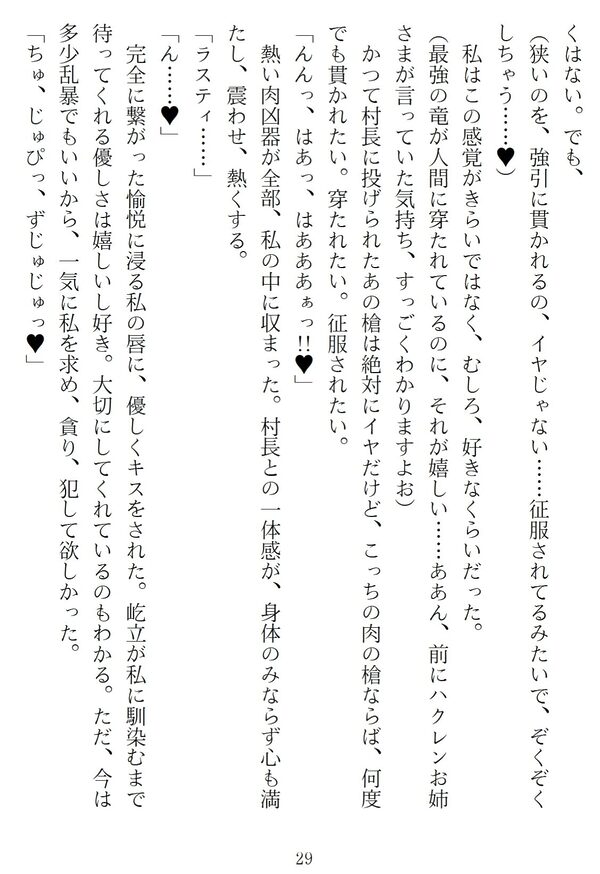 くはない。でも、
(狭いのを、強引に貫かれるの、イヤじゃない……征服されてるみたいで、ぞくぞく
しちゃう……♥)
私はこの感覚がきらいではなく、むしろ、好きなくらいだった。
(最強の竜が人間に穿たれているのに、それが嬉しい……ああん、前にハクレンお姉
さまが言っていた気持ち、すっごくわかりますよお)
かつて村長に投げられたあの槍は絶対にイヤだけど、こっちの肉の槍ならば、何度
でも貫かれたい。穿たれたい。征服されたい。
「んんっ、はあっ、はあああぁっ!!♥」
熱い肉凶器が全部、私の中に収まった。村長との一体感が、身体のみならず心も満
たし、震わせ、熱くする。
「ラスティ……」
「ん……♥」
完全に繋がった愉悦に浸る私の唇に、優しくキスをされた。屹立が私に馴染むまで
待ってくれる優しさは嬉しいし好き。大切にしてくれているのもわかる。ただ、今は
多少乱暴でもいいから、一気に私を求め、貪り、犯して欲しかった。
「ちゅ、じゅぴっ、ずじゅじゅっ♥」
29